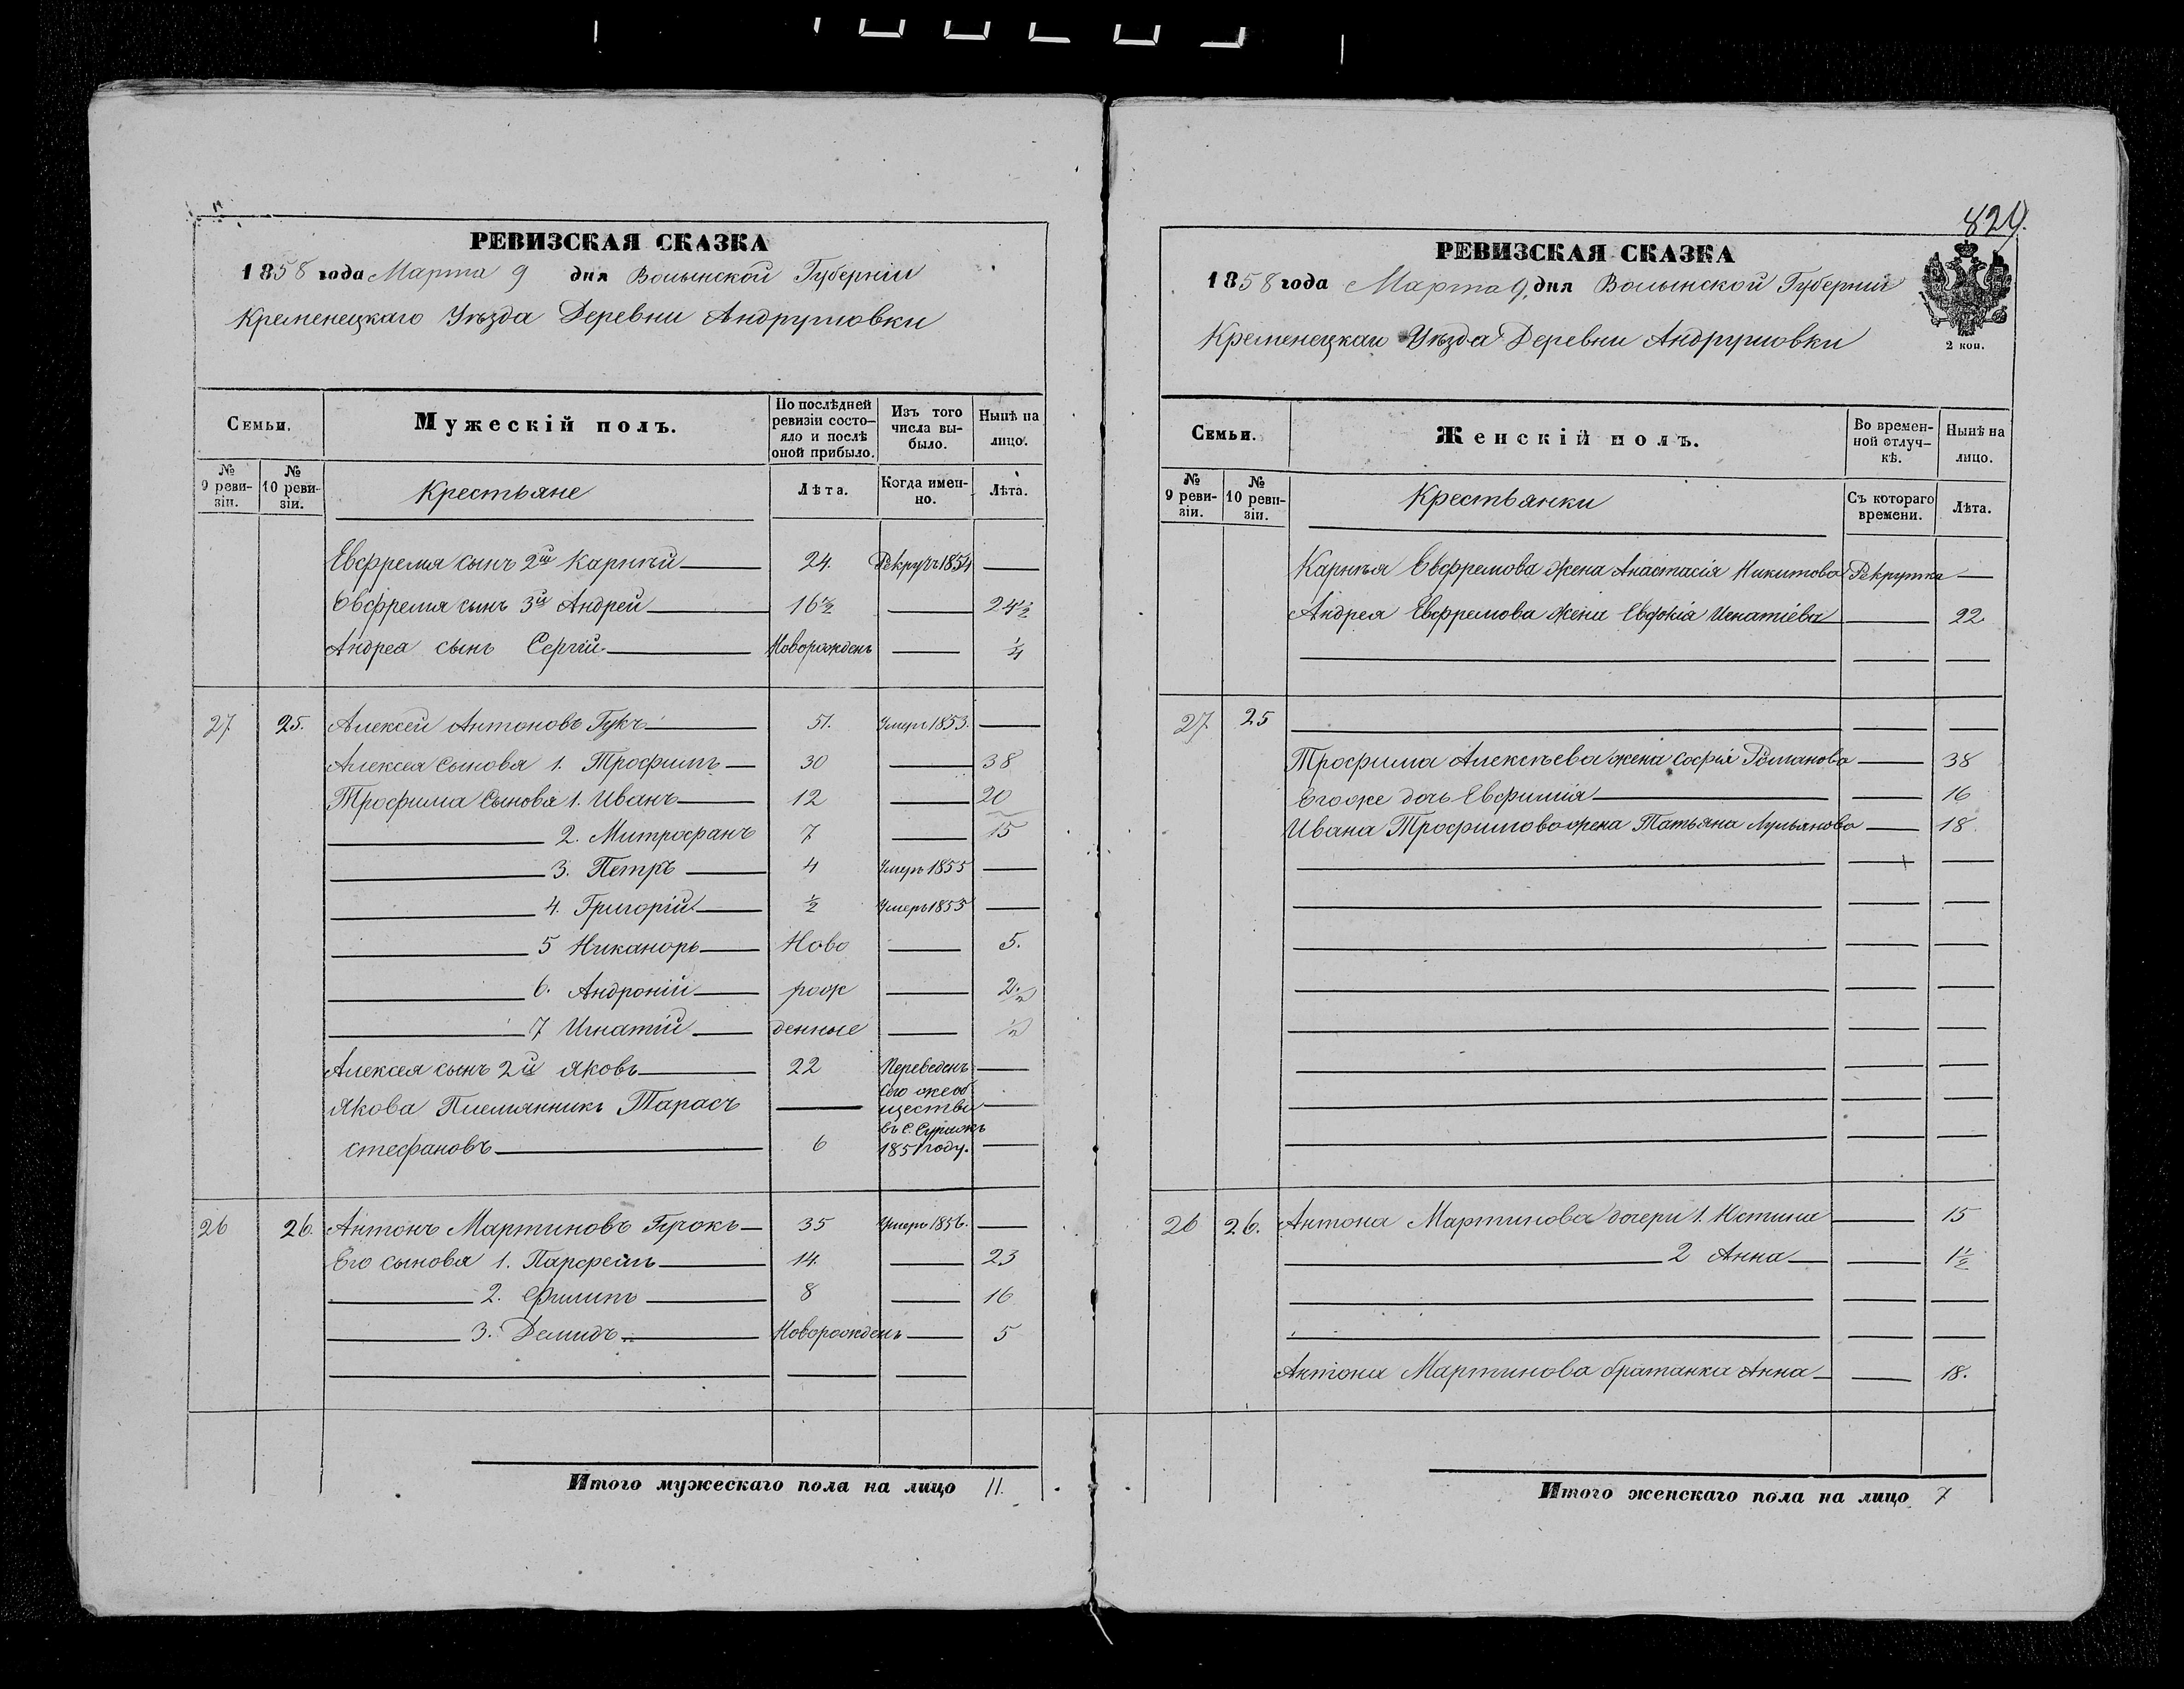 РЕВИЗСКАЯ СКАЗКА
1858 года Марта 9 дня Волынской Губернии
Кременецкаго Уѣзда Деревни Андрушовки
Семьи.
Мужескій полъ.
По послѣдней ревизіи состояло и послѣ оной прибыло.
Изъ того числа выбыло.
Нынѣ на лицо.
№ 9 ревизіи.
№ 10 ревизіи.
Крестьяне
Лѣта.
Когда именно.
Лѣта.
Евфрема сынъ 2й Карпѣй 24. Рекрутъ 1854
Евфрема сынъ 3й Андрей 16½ 24½
Андреа сынъ Сергій Новорожденъ ¼
27 25. Алексей Антоновъ Гукъ 51. Умеръ 1853.
Алексея сыновя 1. Трофимъ 30 38
Трофима сыновя 1. Иванъ 12 20
2. Митрофанъ 7 15
3. Петръ 4 Умеръ 1855
4. Григорій ½ Умеръ 1855
5 Никаноръ Ново 5.
6. Андроній рож 2½
7 Игнатій денные ½
Алексея сынъ 2й Яковъ 22 Переведенъ
Якова Племянникъ Тарасъ сего же об
щества
въ С.
Стефановъ 6 1851 году.
26 26. Антонъ Мартиновъ 35 Умеръ 1856.
Его сыновя 1. Парфенъ 14. 23
2. Филипъ 8 16
3. Демидъ Новорожденъ 5
Итого мужескаго пола на лицо 11.
829.
РЕВИЗСКАЯ СКАЗКА
1858 года Марта 9, дня Волынской Губернии
Кременецкаго Уѣзда Деревни Андрушовки
2 коп.
Семьи.
Женскій полъ.
Во временной отлучкѣ.
Нынѣ на лицо.
№ 9 ревизіи.
№ 10 ревизіи.
Крестьянки
Съ котораго времени.
Лѣта.
Карпѣя Евфремова жена Анастасія Никитова Рекрутка
Андрея Евфремова жена Евдокія Игнатіева 22
27 25
Трофима Алексѣева жена Софія Романова 38
Егоже дочь Евфимія 16
Ивана Трофимова жена Татьяна Лукьянова 18.
26 26. Антона Мартинова дочери 1. Юстина 15
2 Анна 1½
Антона Мартинова братанка Анна 18.
Итого женскаго пола на лицо 7